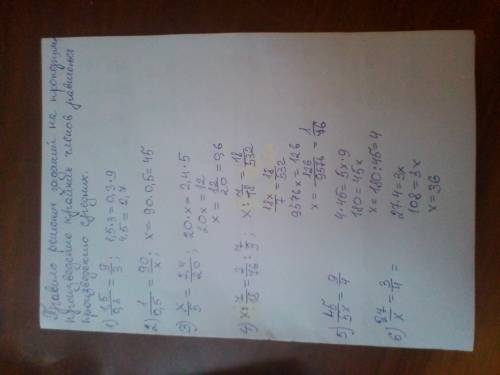 Правило решения заданий на пропорции
произведение крайних членов равняется
произведению средних.
1) 1,5/0,3 = 9/3; 1,5·3 = 0,3·9
4,5 = 2,7
2) 1/0,5 = 90/x; x = 90·0,5 = 45
3) x/5 = 2,4/20; 20·x = 2,4·5
20x = 12
x = 12/20 = 0,6
4) x : 7/18 = 2/76 : 7/9; x : 7/18 = 18/532
18x/7 = 18/532
9576x = 126
x = 126/9576 = 1/76
5) 45/5x = 9/4 4·45 = 5x·9
180 = 45x
x = 180:45 = 4
6) 27/x = 3/4 = 27·4 = 3x
108 = 3x
x = 36